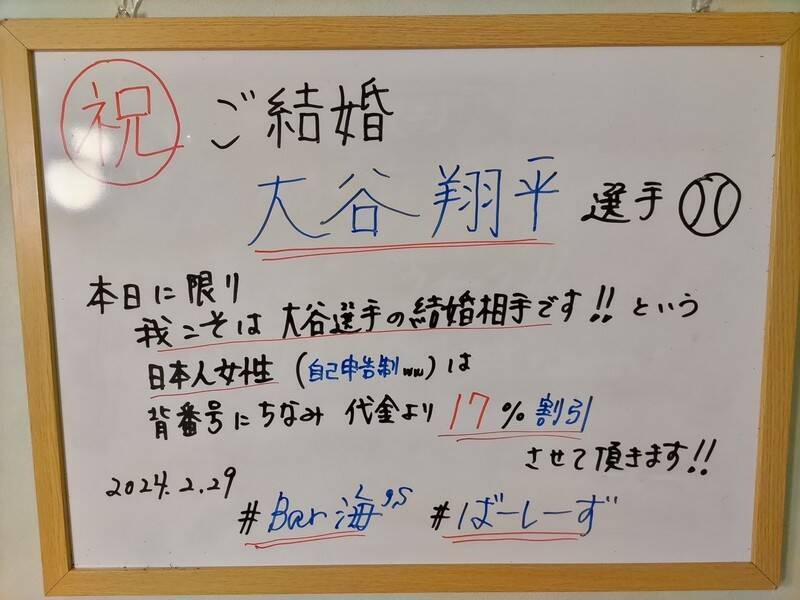 祝 ご結婚
大谷 翔平 選手
本日に限り
我こそは 大谷選手の結婚相手です!! という
日本人女性 (自己申告制ww)は
背番号にちなみ 代金より 17%割引
させて頂きます!!
2024.2.29
#Bar海's #ばーしーず